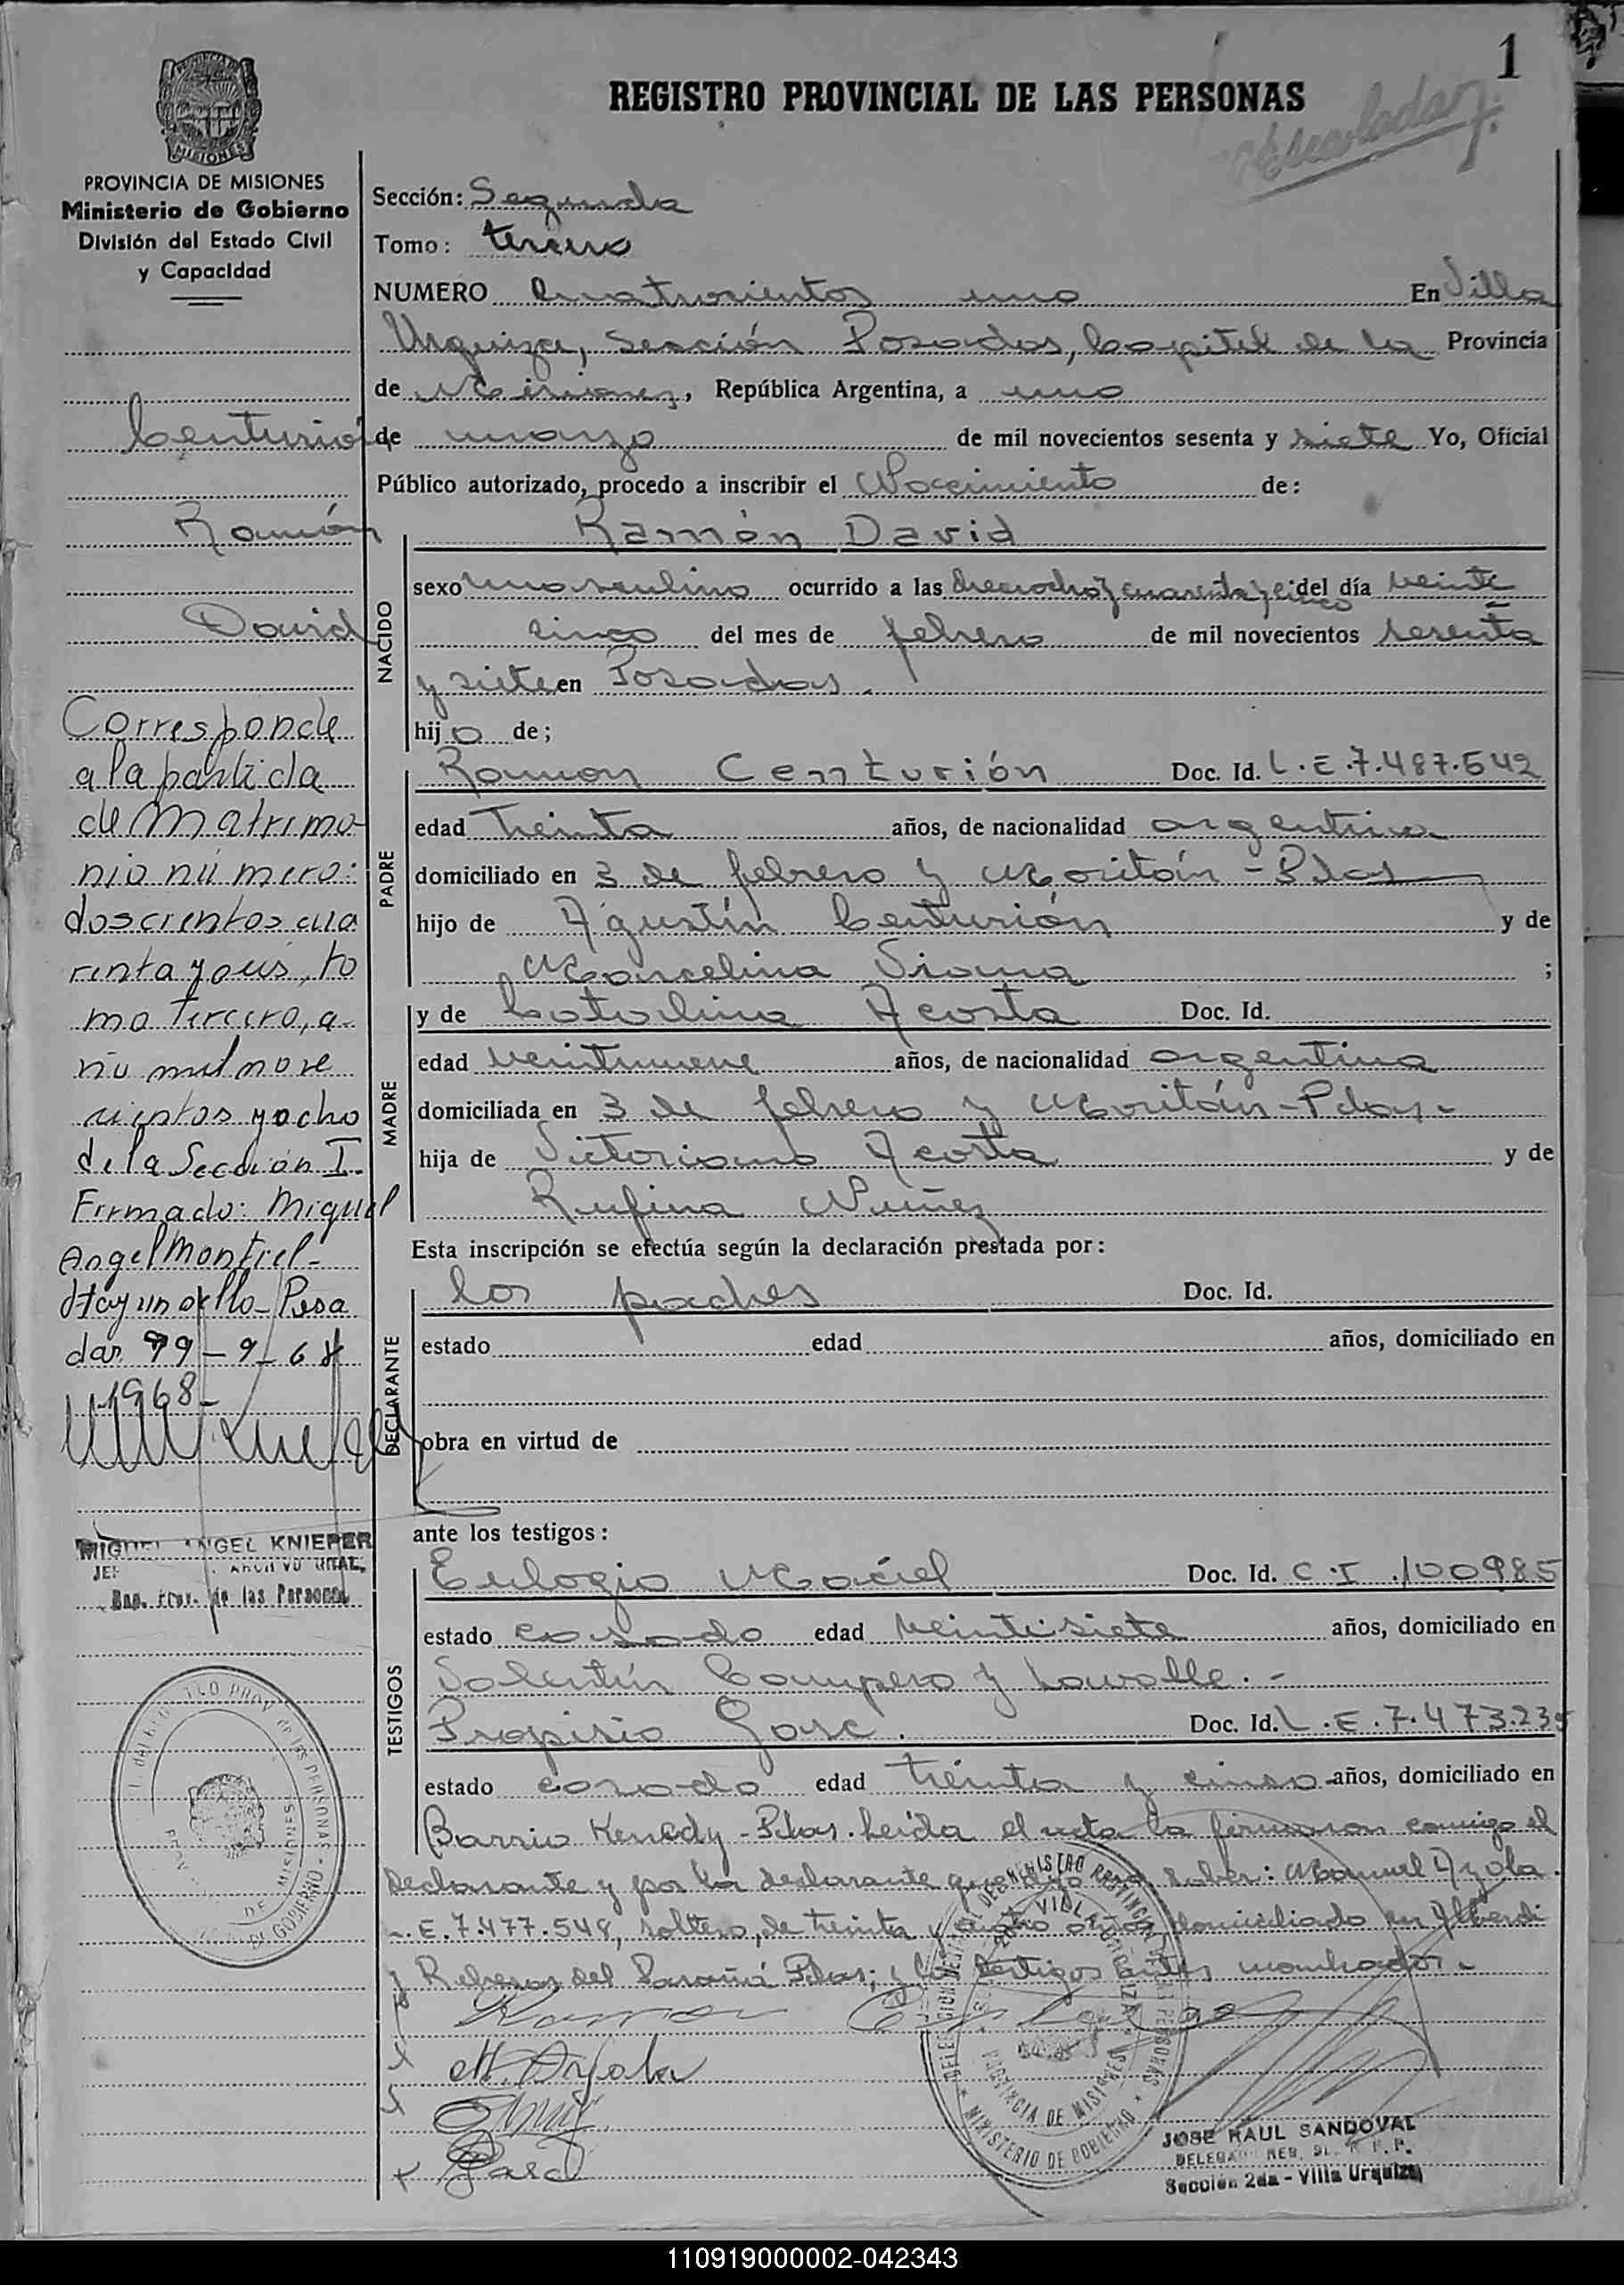 1
REGISTRO PROVINCIAL DE LAS PERSONAS
MISIONES
PROVINCIA DE MISIONES
Ministerio de Gobierno
División del Estado Civil
y Capacidad
Centurió
Ramón
David
Corresponde
a la partida
de Matrimo
nio número:
doscientos cua
renta y
mo tercero, a
ño mil nove
cientos y ocho
de la Sección I.
Firmado: Miguel
Angel Montiel-
Hay un sello - Posa
das 19-9-68
1968-
MIGUEL ANGEL KNIEPER
Reg. Prov. de las Personas
Sección: Segunda
Tomo: tercero
NUMERO Cuatrocientos uno En Villa
Urquiza, Sección Posadas, Capital de la Provincia
de Misiones, República Argentina, a uno
de marzo de mil novecientos sesenta y siete Yo, Oficial
Público autorizado, procedo a inscribir el Nacimiento de:
NACIDO
Ramón David
sexo masculino ocurrido a las dieciocho y cuarenta y cinco del día veinte
cinco del mes de febrero de mil novecientos sesenta
y siete en Posadas.
hijo de;
PADRE
Ramon Centurión Doc. Id. L.E.7.487.542
edad treinta años, de nacionalidad argentina
domiciliado en 3 de febrero y Moritán - Pdas
hijo de Agustín Centurión y de
Marcelina ;
MADRE
y de Catalina Acosta Doc. Id.
edad veintinueve años, de nacionalidad argentina
domiciliada en 3 de febrero y Moritán - Pdas.-
hija de Victoriano Acosta y de
Rufina Nuñez
Esta inscripción se efectúa según la declaración prestada por:
DECLARANTE
los padres Doc. Id.
estado edad años, domiciliado en
obra en virtud de
ante los testigos:
TESTIGOS
Eulogio Maciel Doc. Id. C.I. 100985
estado casado edad veintisiete años, domiciliado en
Valentín Campero y Lavalle.-
Propisio Gose. Doc. Id. L.E.7.473.235
estado casado edad treinta y cinco años, domiciliado en
Barrio Kenedy - Pdas. Leída el acta la firmaron conmigo el
declarante y por la declarante que dijo no saber: Manuel Ayola.
L.E.7.477.548, soltero, de treinta y cuatro años domiciliado en Alberdi
y Reberas del Paraná Pdas; y los testigos antes nombrados.-
Ramon
M. Ayola
JOSE RAUL SANDOVAL
Sección 2da - Villa Urquiza
MINISTERIO DE GOBIERNO
PROVINCIA DE MISIONES
110919000002-042343